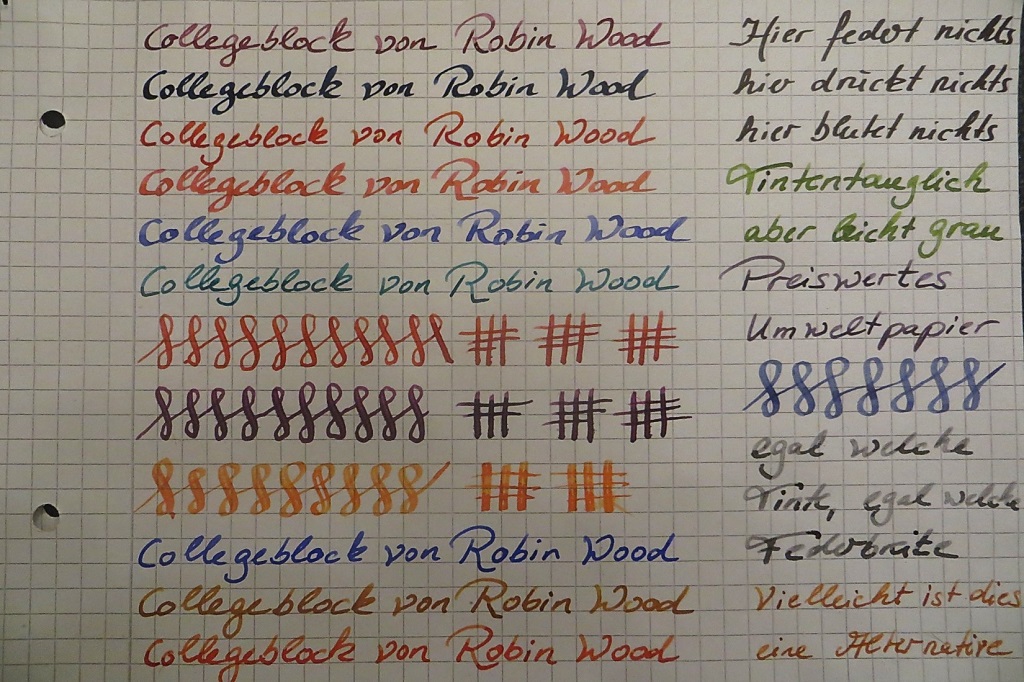 Collegeblock von Robin Wood
Collegeblock von Robin Wood
Collegeblock von Robin Wood
Collegeblock von Robin Wood
Collegeblock von Robin Wood
Collegeblock von Robin Wood
Collegeblock von Robin Wood
Collegeblock von Robin Wood
Collegeblock von Robin Wood
Hier federt nichts
hier drückt nichts
hier blutet nichts
Tintentauglich
aber leicht grau
Preiswertes
Umweltpapier
egal welche
Tinte, egal welche
Federbreite
Vielleicht ist dies
eine Alternative